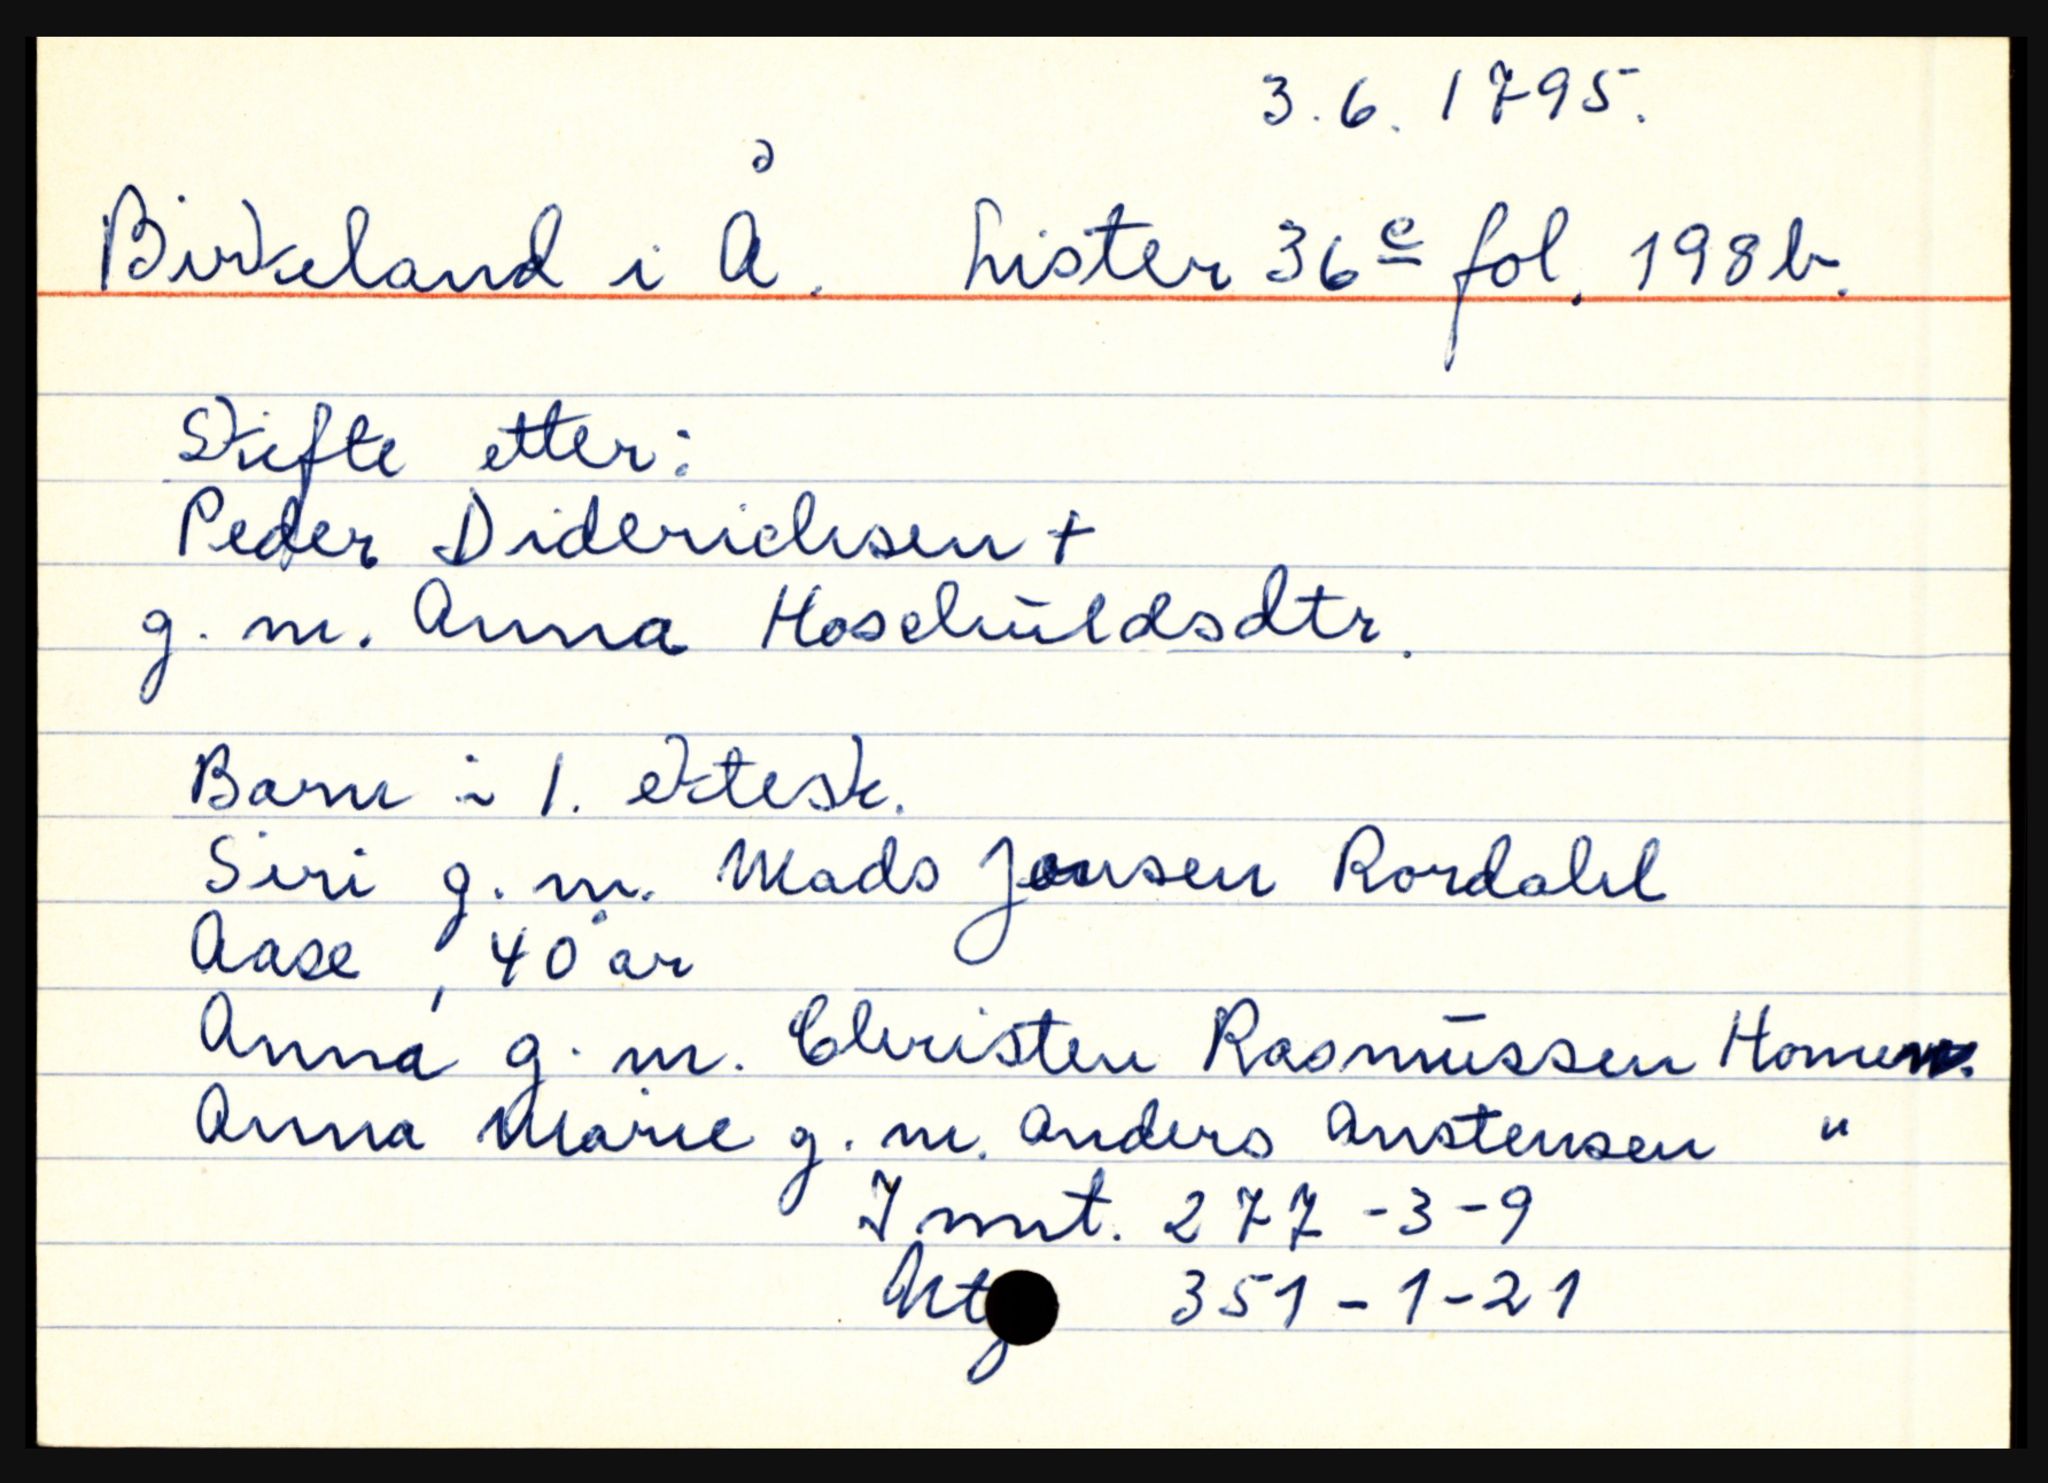 3.6.1795.
Birkeland i Å. Lister 36c fol. 198b.
Skifte etter:
Peder Diderichsen +
g. m. Anna Hoschuldsdtr.
Barn i 1. ektesk.
Siri g. m. Mads Jensen Rordahl
Aase, 40 år
Anna g. m. Christen Rasmussen
Anna Marie g. m. Anders Anstensen "
Innt. 277-3-9
Utg 351-1-21